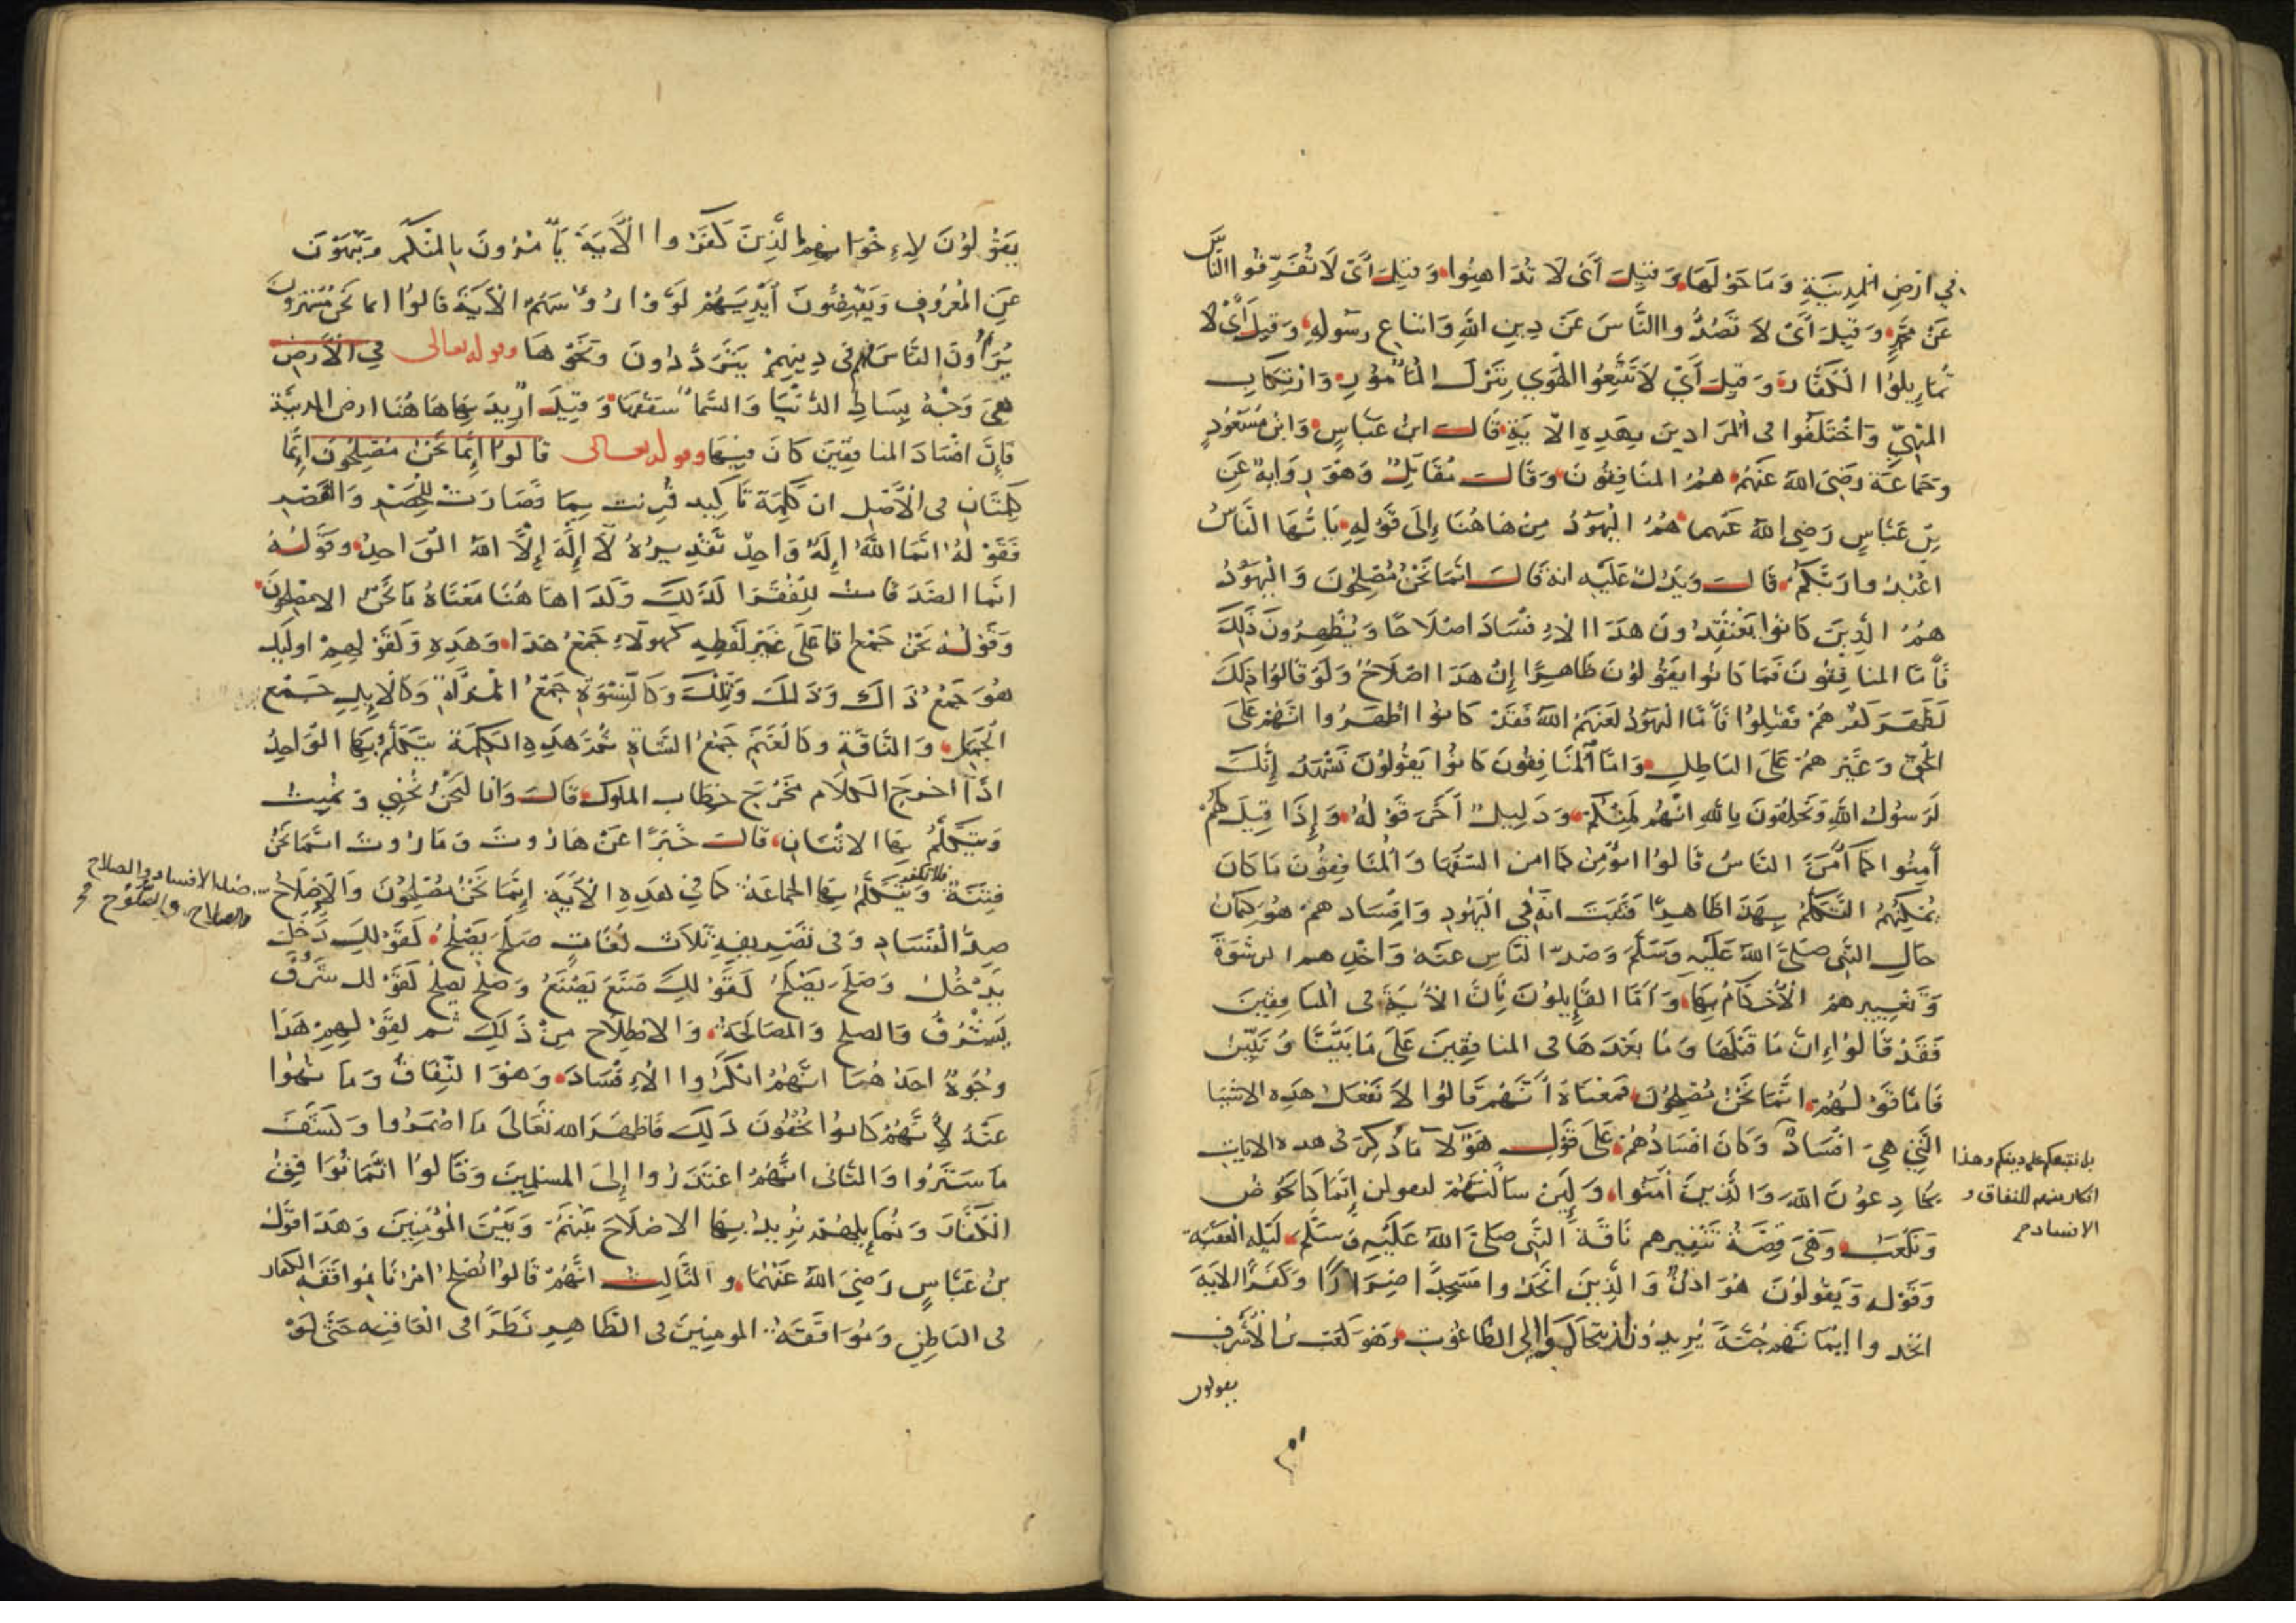 في ارْضِ المدِينَةِ وَمَا حَوْلَهَا وَقِيلَ أَىْ لَا تُدَاهِنُوا وَقِيلَ أَىْ لَا تُفَرِّقُوا النَّاسَ
عَنْ مُحَمَّدٍ وَقِيلَ أَىْ لَا تَصُدُّوا النَّاسَ عَنْ دِينِ اللهِ وَاتباعِ رسُولِهِ وَقِيلَ أَىْ لَا
تُمَايِلُوا الكُفَّارَ وَقِيلَ أَيْ لَا تَتَّبِعُوا الهَوي بِتَرْكِ المَأْمُورِ وَارْتِكَابِ
المَنْهِيِّ وَاخْتَلَفُوا فى المُرَادِينَ بِهَذِهِ الآيَةِ قَالَ ابنُ عَبَّاسٍ وَابْنُ مَسْعُودٍ
وَجَمَاعَة رَضِىَ اللهُ عَنْهُم هُمُ المنَافِقُونَ وَقَالَ مُقَاتِلٌ وَهُوَ رِوَايةٌ عَنِ
بْنِ عَبَّاسٍ رَضِي اللهُ عَنهما هُمُ اليَهُودُ مِنْ هَاهُنَا إِلَى قَوْلِهِ يَا أيُّهَا النَّاسُ
اعْبُدُوا رَبَّكُمْ قَالَ وَيَدُلُّ عَلَيْهِ انهُ قَالَ انَّمَا نَحْنُ مُصْلِحُونَ وَاليَهُودُ
هُمُ الَّذِينَ كَانُوا يَعْتَقِدُونَ هَذَا الافْسَادَ اصْلَاحًا وَيُظْهِرُونَ ذَلِكَ
فَأَمَّا المنافِقُونَ فَمَا كَانُوا يَقُولُونَ ظَاهِرًا إِنَّ هَذَا اصْلَاحٌ وَلَوْ قَالُوا ذلكَ
لَظَهَرَ كُفْرُهُمْ فَقُتِلُوا فَأَمَّا اليَهُودُ لَعَنَهُمُ اللهُ فَقَدْ كَانُوا اظهَرُوا انَّهُمْ عَلَى
الحَقِّ وَغَيْرهُمْ عَلَى البَاطِلِ وَامَّا المُنَافِقُونَ كَانُوا يَقُولُونَ نَشْهَدُ إِنَّكَ
لَرَسُولُ اللهِ وَيَحْلِفُونَ بِاللهِ انَّهُمْ لَمِنْكُمْ وَدَلِيلٌ آخَرُ قَوْلُهُ وَإِذَا قِيلَ لَهُمْ
آمِنُوا كَمَا آمَنَ النَّاسُ قَالُوا انُؤْمِنُ كَمَا امن السُّفَهَا وَالْمُنَافِقُونَ مَا كَانَ
يُمْكِنُهُمُ التَّكَلُّمُ بِهَذَا ظَاهِرًا فَثَبَتَ انهُ فِي اليَهُودِ وَافْسَادهمْ هُوَ كِتْمَانُ
حَالِ النَّبِى صَلَّى اللهُ عَلَيْهِ وَسَلَّمَ وَصَدّ النَّاسِ عنَهُ وَاخْذهم الرشْوَةَ
وَتَغْيِيرهمُ الأَحْكَامَ بِهَا وَأَمَّا القَايِلُونَ بِأَنَّ الأَيَةَ فى المنافِقِينَ
فَقَدْ قَالُوا انَّ مَا قَبْلَهَا وَمَا بَعْدَهَا فى المنافِقِينَ عَلَى مَا بَيَّنَّا وَنُبَيِّنُ
فَامَّا قَوْلُهُمْ انَّمَا نَحْنُ مُصْلِحُونَ فَمَعْنَاهُ أَنَّهُمْ قَالُوا لَا نَفْعَلُ هَذِهِ الاشْيَا
الَّتِي هِيَ افْسَادٌ وَكَانَ افْسَادُهُمْ عَلَى قَوْلِ هَؤُلَا مَا ذُكِرَ فى هذه الايات
يُخَادِعُونَ اللهَ وَالَّذِينَ آمَنُوا وَلَئِنْ سَأَلْتَهُمْ ليقولن إِنَّمَا كنا نَخُوضُ
وَنَلْعَبُ وَهِيَ قِصَّةُ تَنْفِيرهم نَاقَةَ النَّبِى صَلَّى اللهُ عَلَيْهِ وَسَلَّم لَيْلَةَ العَقَبَةِ
وَقَوْله وَيَقُولُونَ هُوَ اذُنٌ وَالَّذِينَ اتَّخَذُوا مَسْجِدًا ضِرَارًا وَكُفْرًا الايَةَ
اتخذوا ايْمَانَهُمْ جُنَّةً يُرِيدُونَ ان يتحَاكَمُوا الى الطَّاغُوتِ وَهُوَ كَعْب بنُ الأَشْرَفِ
يقولون
بل نتبعكم على دينكم وهذا
انكار منهم للنفاق و
الافساد
يَقُولُونَ لِإِخْوَانِهِمُ الَّذِينَ كَفَرُوا الآيَةَ يَأْمُرُونَ بِالمنْكَرِ وَيَنْهَوْنَ
عَنِ الْمَعْرُوفِ وَيَقْبِضُونَ أَيْدِيَهُمْ لَوَّوْا رُؤُسَهُمْ الآيَةَ قَالُوا انما نَحْنُ مُسْتَهْزِؤُنَ
يُرَاؤُنَ النَّاسَ فهم فى دِينِهِمْ يَتَرَدَّدُونَ وَنَحْوهَا وقوله تعالى فِي الأَرْضِ
هِيَ وَجْهُ بِسَاطِ الدُّنْيَا وَالسَّمَا سَقْفُهَا وَقِيلَ ارِيدَ بِهَا هَاهُنَا ارض المدينَة
فَإِنَّ افْسَادَ المنافِقِينَ كَانَ فِيهَا وقوله تعالى قَالُوا إِنَّمَا نَحْنُ مُصْلِحُونَ إِنَّمَا
كَلِمَتَانِ فى الأَصْلِ ان كَلِمَة تَاكِيد قُرِنت بِمَا فَصَارَتْ لِلْحَصْرِ وَالقَصْرِ
فَقَوْلُهُ انَّمَا اللهُ إِلَهٌ وَاحِدٌ تَقْدِيرُهُ لَا إِلَهَ إِلَّا اللهُ الوَاحِدُ وَقَوْلُهُ
انَّمَا الصَّدَقَاتُ لِلْفُقَرَا كَذَلِكَ وَكَذَا هَاهُنَا مَعْنَاهُ مَا نَحْنُ الا مصْلِحُونَ
وَقَوْلُهُ نَحْنُ جَمْعُ انا عَلَى غَيْرِ لَفْظِهِ كهولَاءِ جَمْعُ هَذَا وَهَذِهِ وَكَقَوْلِهِمْ اوليكَ
هُوَ جَمْعُ ذَاكَ وَذَلِكَ وَتِلْكَ وَكَالنِّسْوَةِ جَمْعُ المَرْأَةِ وَكَالابِلِ جَمْع
الجَمَلِ وَالنَّاقَةِ وَكَالغَنَمِ جَمْعُ الشَّاةِ ثُمَّ هَذِهِ الكَلِمَةُ يَتَكَلَّمُ بِهَا الوَاحِدُ
اذَا اخرجَ الكَلَامَ مَخْرَجَ خِطَابِ الملوكِ قَالَ وَانا لَنَحْنُ نُحْيِي وَنُمِيتُ
وَيَتَكَلَّمُ بِهَا الاثْنَانِ قَالَ خَبَرًا عَنْ هَارُوتَ وَمَارُوتَ انَّمَا نَحْنُ
فِتْنَةٌ فلا تكفر وَيَتَكَلَّمُ بِهَا الجماعَةُ كَمَا فِي هَذِهِ الآيَةِ إِنَّمَا نَحْنُ مُصْلِحُونَ وَالإِصْلَاحُ
ضد الافساد والصلاح
والصلاح والصلُوح
ضِدُّ الفَسَادِ وَفى تَصْرِيفِهِ ثَلَاث لُغَاتٍ صَلَحَ يَصْلُحُ كَقَوْلِكَ دَخَلَ
يَدْخُلُ وَصَلَحَ يَصْلَحُ كَقَوْلِكَ صَنَعَ يَصْنَعُ وَصَلُحَ يَصْلُحُ كَقَوْلك شَرُفَ
يَشْرُفُ وَالصلح وَالمصَالَحَةُ وَالاصْطِلَاح مِنْ ذَلِكَ ثم لِقَوْلِهِمْ هَذَا
وُجُوهٌ احَدُهُمَا انَّهُمْ انْكَرُوا الافْسَادَ وَهُوَ النِّفَاقُ وَمَا نُهُوا
عَنْهُ لِأَنَّهُمْ كَانُوا يُخْفُونَ ذَلِكَ فَاظهَرَ الله تَعَالَى مَا اضْمَرُوا وَكَشَفَ
مَا سَتَرُوا وَالثَّانى انَّهُمُ اعْتَذَرُوا إِلَى المسْلِمِينَ وَقَالُوا انَّمَا نُوَافِقُ
الكُفَّارَ وَنُمَايِلُهُمْ نُرِيدُ بِهَا الاصْلَاحَ بَيْنَهُمْ وَبَيْنَ المُؤْمِنِينَ وَهَذَا قَوْلُ
بْنُ عَبَّاسٍ رَضِيَ اللهُ عَنْهُمَا وَالثَّالِثُ انَّهُمْ قَالُوا نُصْلِحُ امْرَنَا بِمُوَافَقَةِ الكفار
فى البَاطِنِ وَمُوَافَقَة المومِنِينَ فى الظَّاهِرِ نَظَرًا فى العَاقِبَه حَتَّى لَوْ